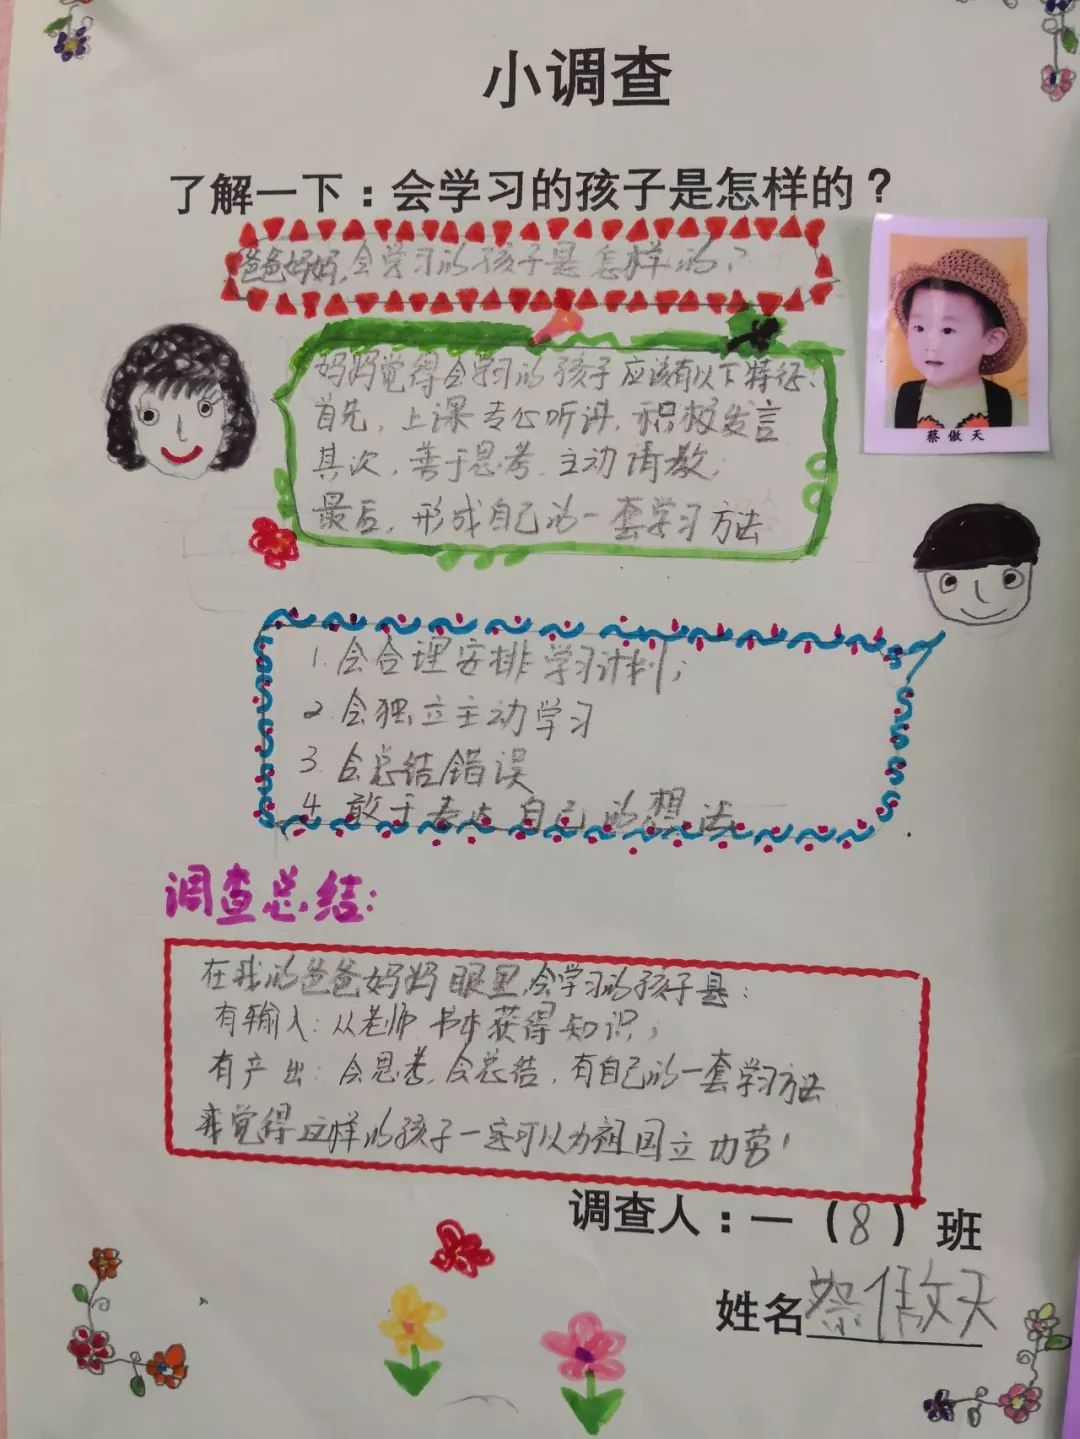 小调查
了解一下：会学习的孩子是怎样的？
爸爸妈妈，会学习的孩子是怎样的？
妈妈觉得会学习的孩子应该有以下特征：
首先，上课专心听讲，积极发言
其次，善于思考，主动请教，
最后，形成自己的一套学习方法
蔡傲天
1. 会合理安排学习计划；
2. 会独立主动学习
3. 会总结错误
4. 敢于表达自己的想法
调查总结：
在我的爸爸妈妈眼里，会学习的孩子是：
有输入：从老师书本获得知识；
有产出：会思考，会总结，有自己的一套学习方法
我觉得这样的孩子一定可以为祖国立功劳！
调查人：一（8）班
姓名蔡傲天